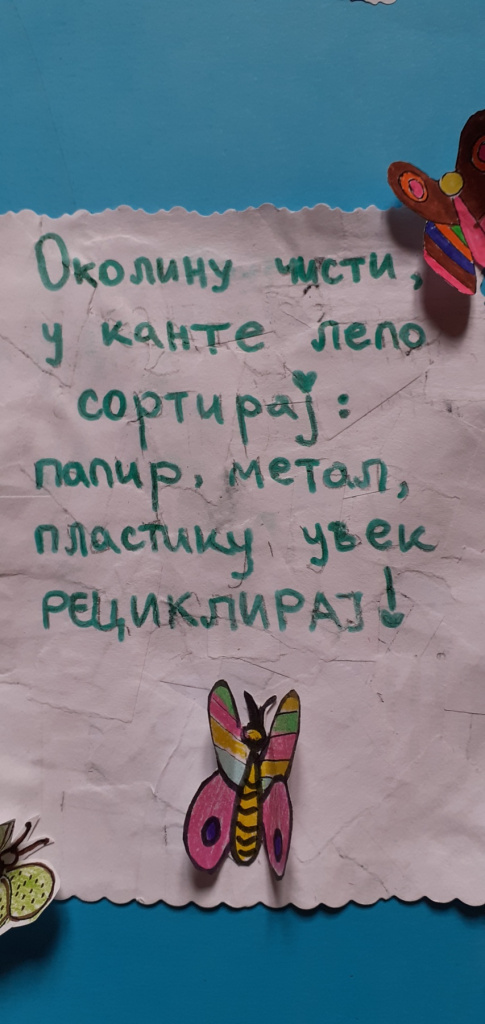 Околину чисти,
у канте лепо
сортирај:
папир, метал,
пластику увек
РЕЦИКЛИРАЈ!